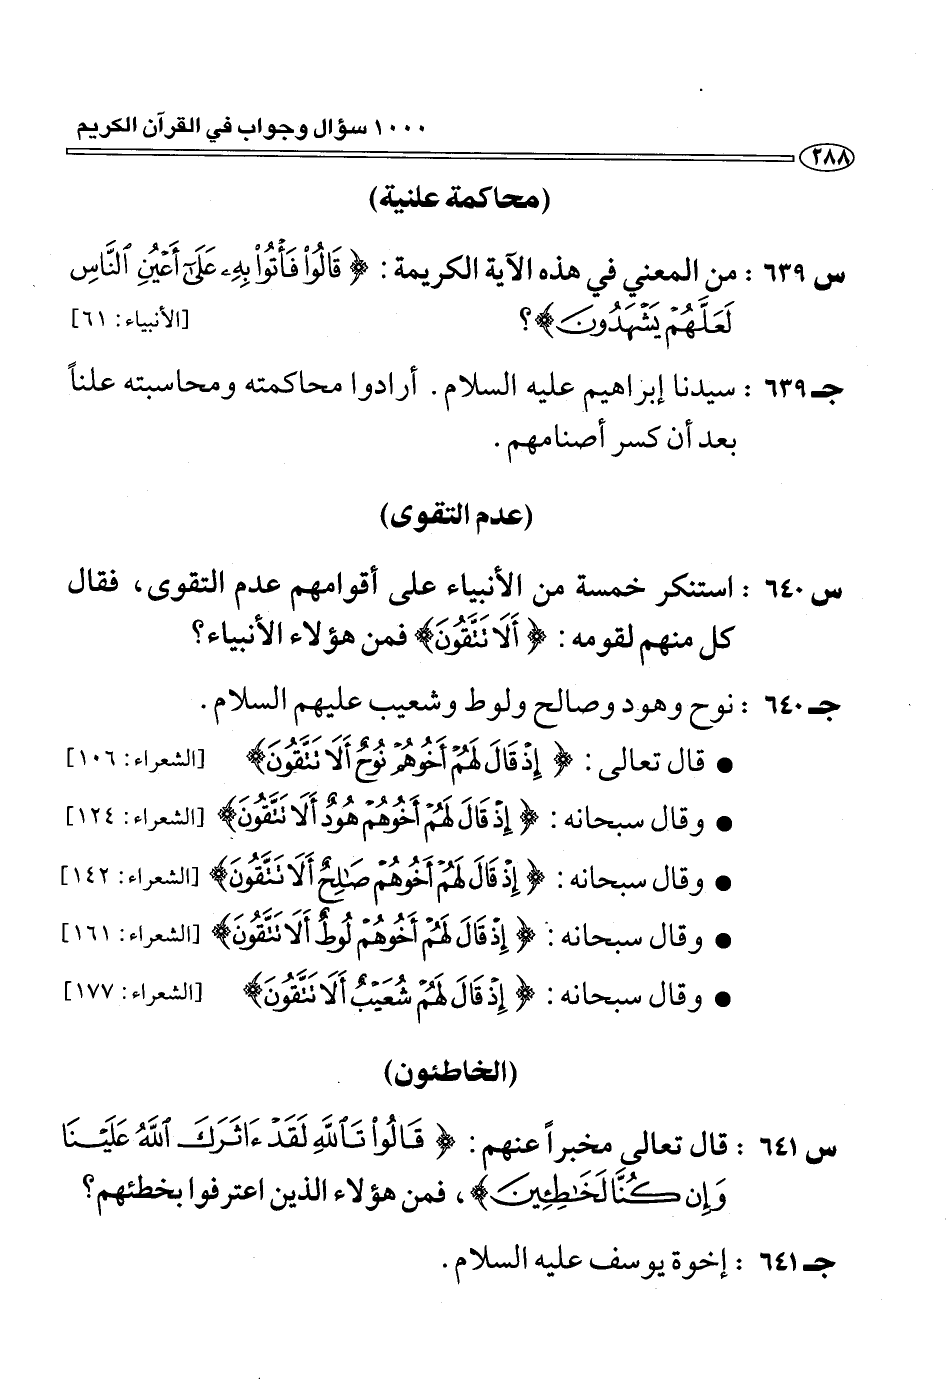 ١٠٠٠ سؤال وجواب في القرآن الكريم
٢٨٨
(محاكمة علنية)
س ٦٣٩ : من المعني في هذه الآية الكريمة : ﴿ قَالُوا۟ فَأْتُوا۟ بِهِۦ عَلَىٰٓ أَعْيُنِ ٱلنَّاسِ
لَعَلَّهُمْ يَشْهَدُونَ ﴾؟ [الأنبياء: ٦١]
جـ ٦٣٩ : سيدنا إبراهيم عليه السلام . أرادوا محاكمته ومحاسبته علناً
بعد أن كسر أصنامهم .
(عدم التقوى)
س ٦٤٠ : استنكر خمسة من الأنبياء على أقوامهم عدم التقوى ، فقال
كل منهم لقومه : ﴿ أَلَا تَتَّقُونَ ﴾ فمن هؤلاء الأنبياء؟
جـ ٦٤٠ : نوح وهود وصالح ولوط وشعيب عليهم السلام .
● قال تعالى : ﴿ إِذْ قَالَ لَهُمْ أَخُوهُمْ نُوحٌ أَلَا تَتَّقُونَ ﴾ [الشعراء: ١٠٦]
● وقال سبحانه : ﴿ إِذْ قَالَ لَهُمْ أَخُوهُمْ هُودٌ أَلَا تَتَّقُونَ ﴾ [الشعراء: ١٢٤]
● وقال سبحانه : ﴿ إِذْ قَالَ لَهُمْ أَخُوهُمْ صَٰلِحٌ أَلَا تَتَّقُونَ ﴾ [الشعراء: ١٤٢]
● وقال سبحانه : ﴿ إِذْ قَالَ لَهُمْ أَخُوهُمْ لُوطٌ أَلَا تَتَّقُونَ ﴾ [الشعراء: ١٦١]
● وقال سبحانه : ﴿ إِذْ قَالَ لَهُمْ شُعَيْبٌ أَلَا تَتَّقُونَ ﴾ [الشعراء: ١٧٧]
(الخاطئون)
س ٦٤١ : قال تعالى مخبراً عنهم : ﴿ قَالُوا۟ تَٱللَّهِ لَقَدْ ءَاثَرَكَ ٱللَّهُ عَلَيْنَا
وَإِن كُنَّا لَخَٰطِـِٔينَ ﴾ ، فمن هؤلاء الذين اعترفوا بخطئهم؟
جـ ٦٤١ : إخوة يوسف عليه السلام .